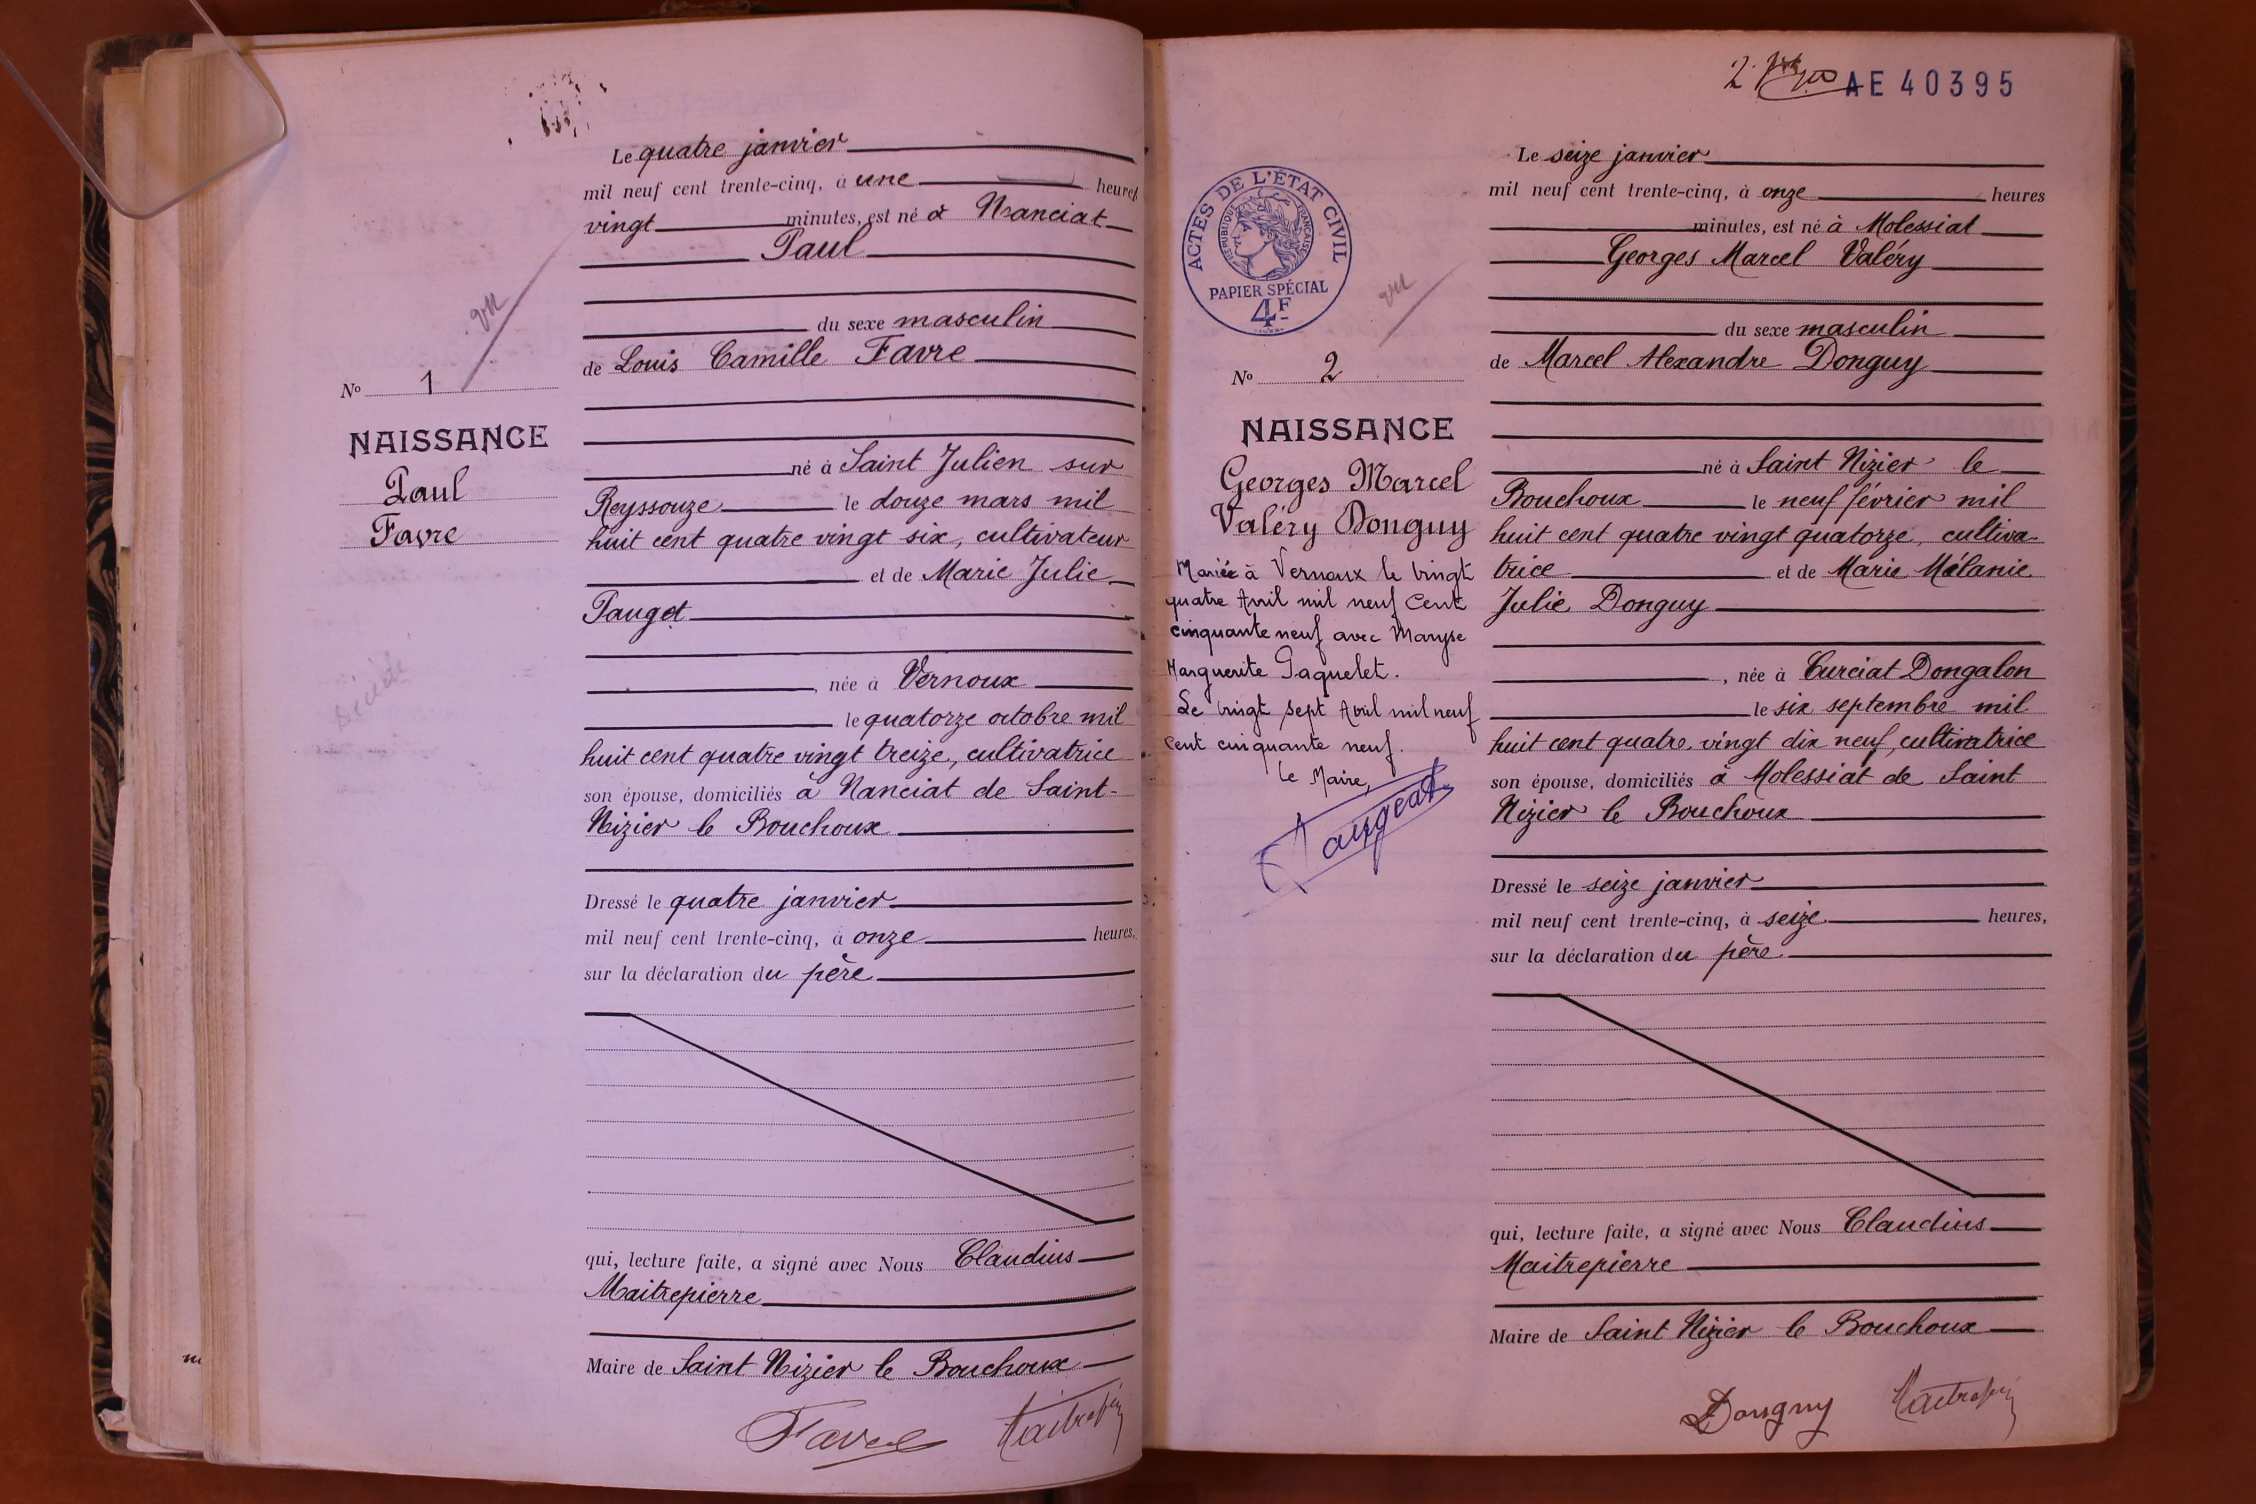 Le quatre janvier
mil neuf cent trente-cinq, à une heures
vingt minutes, est né à Nanciat
Paul
du sexe masculin
de Louis Camille Favre
né à Saint Julien sur
Reyssouze le douze mars mil
huit cent quatre vingt six, cultivateur
et de Marie Julie
Pauget
, née à Vernoux
le quatorze octobre mil
huit cent quatre vingt treize, cultivatrice
son épouse, domiciliés à Nanciat de Saint-
Nizier le Bouchoux
Dressé le quatre janvier
mil neuf cent trente-cinq, à onze heures,
sur la déclaration du père
qui, lecture faite, a signé avec Nous Claudius
Maitrepierre
Maire de Saint Nizier le Bouchoux
Favre
vu
No 1
NAISSANCE
Paul
Favre
décédé
AE 40395
ACTES DE L'ÉTAT CIVIL
RÉPUBLIQUE FRANÇAISE
PAPIER SPÉCIAL
4F
vu
No 2
NAISSANCE
Georges Marcel
Valéry Donguy
Marié à Vernoux le vingt
quatre Avril mil neuf cent
cinquante neuf avec Maryse
Marguerite Paquelet.
Le vingt sept Avril mil neuf
cent cinquante neuf.
Le Maire,
Le seize janvier
mil neuf cent trente-cinq, à onze heures
minutes, est né à Molessiat
Georges Marcel Valéry
du sexe masculin
de Marcel Alexandre Donguy
né à Saint Nizier le
Bouchoux le neuf février mil
huit cent quatre vingt quatorze, cultiva-
trice et de Marie Mélanie
Julie Donguy
, née à Curciat Dongalon
le six septembre mil
huit cent quatre vingt dix neuf, cultivatrice
son épouse, domiciliés à Molessiat de Saint
Nizier le Bouchoux
Dressé le seize janvier
mil neuf cent trente-cinq, à seize heures,
sur la déclaration du père
qui, lecture faite, a signé avec Nous Claudius
Maitrepierre
Maire de Saint Nizier le Bouchoux
Donguy